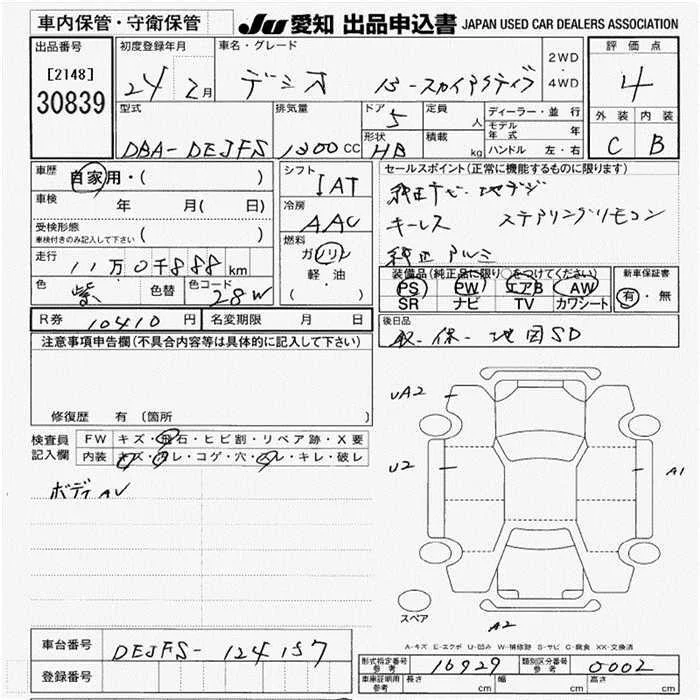 車内保管・守衛保管 JU 愛知 出品申込書 JAPAN USED CAR DEALERS ASSOCIATION
出品番号 初度登録年月 車名・グレード 2WD・4WD 評価点
[2148] 24 2月 デミオ 13-スカイアクティブ 4
30839 型式 排気量 ドア 5 定員 人 ディーラー・並行 外装 内装
モデル年式 年
DBA-DEJFS 1300cc 形状 HB 積載 kg ハンドル 左・右 C B
車歴 自家用・( ) シフト IAT セールスポイント(正常に機能するものに限ります)
車検 年 月( 日) 冷房 AAC 純正ナビ・地デジ
受検形態 キーレス ステアリングリモコン
車検付きのみ記入して下さい 燃料 純正アルミ
走行 11万0千888km ガソリン
軽・油 装備品(純正品に限り○をつけてください) 新車保証書
色 紫 色替 色コード 28W ( ) PS PW エアB AW 有・無
SR ナビ TV カワシート
R券 10410円 名変期限 月 日 後日品
注意事項申告欄(不具合内容等は具体的に記入して下さい) 取-保-地図SD
修復歴 有 〔箇所 〕
UA2
検査員記入欄 FW キズ・飛石・ヒビ割・リペア跡・X要
内装 キズ・ヨゴレ・コゲ・穴・スレ・キレ・破レ
U2 A1
ボディAU
スペア
A2
A-キズ E-エクボ U-凹み W-補修跡 S-サビ C-腐食 XX-交換済
車台番号 DEJFS-124157 形式指定番号 参考 16929 類別区分番号 参考 0002
登録番号 車庫証明用 参考 長さ cm 幅 cm 高さ cm